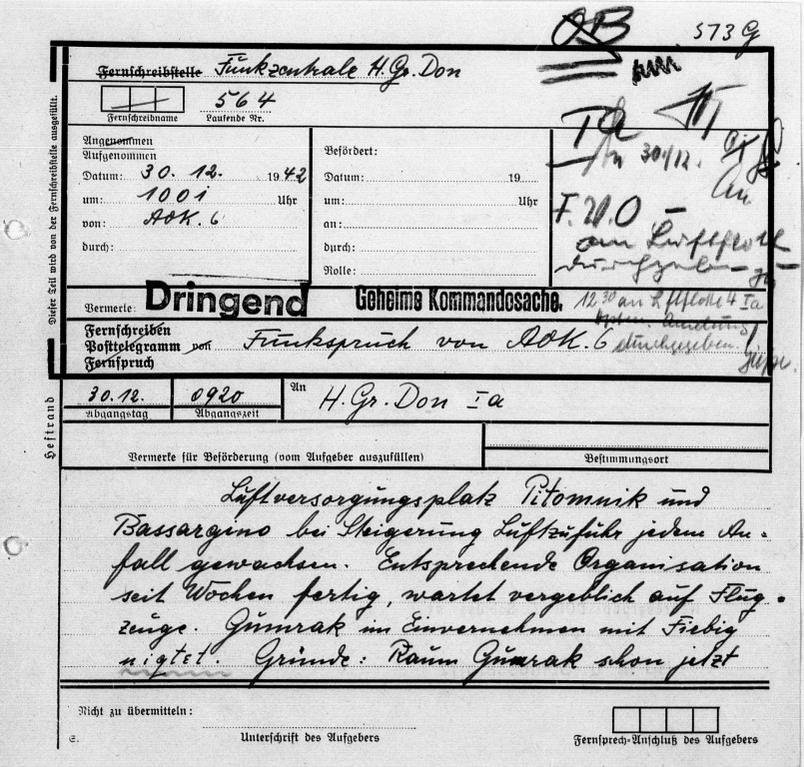 573 G
OB
Fernschreibstelle Funkzentrale H.Gr. Don
564
Fernschreibname Laufende Nr.
Dieser Teil wird von der Fernschreibstelle ausgefüllt.
Angenommen
Aufgenommen
Datum: 30. 12. 1942
um: 1001 Uhr
von: AOK. 6
durch:
Befördert:
Datum: 19
um: Uhr
an:
durch:
Rolle:
30/12.
an Luftflotte
Vermerke: Dringend Geheime Kommandosache.
12 30 an Lftflotte 4 Ia
durchgegeben.
Fernschreiben
Posttelegramm von Funkspruch von AOK. 6
Fernspruch
30.12. 0920 An H.Gr. Don Ia
Abgangstag Abgangszeit
Heftrand
Vermerke für Beförderung (vom Aufgeber auszufüllen) Bestimmungsort
Luftversorgungsplatz Pitomnik und
Bassargino bei Steigerung Luftzufuhr jedem An-
fall gewachsen. Entsprechende Organisation
seit Wochen fertig, wartet vergeblich auf Flug-
zeuge. Gumrak im Einvernehmen mit Fiebig
nigtet. Gründe: Raum Gumrak schon jetzt
Nicht zu übermitteln:
Unterschrift des Aufgebers Fernsprech-Anschluß des Aufgebers